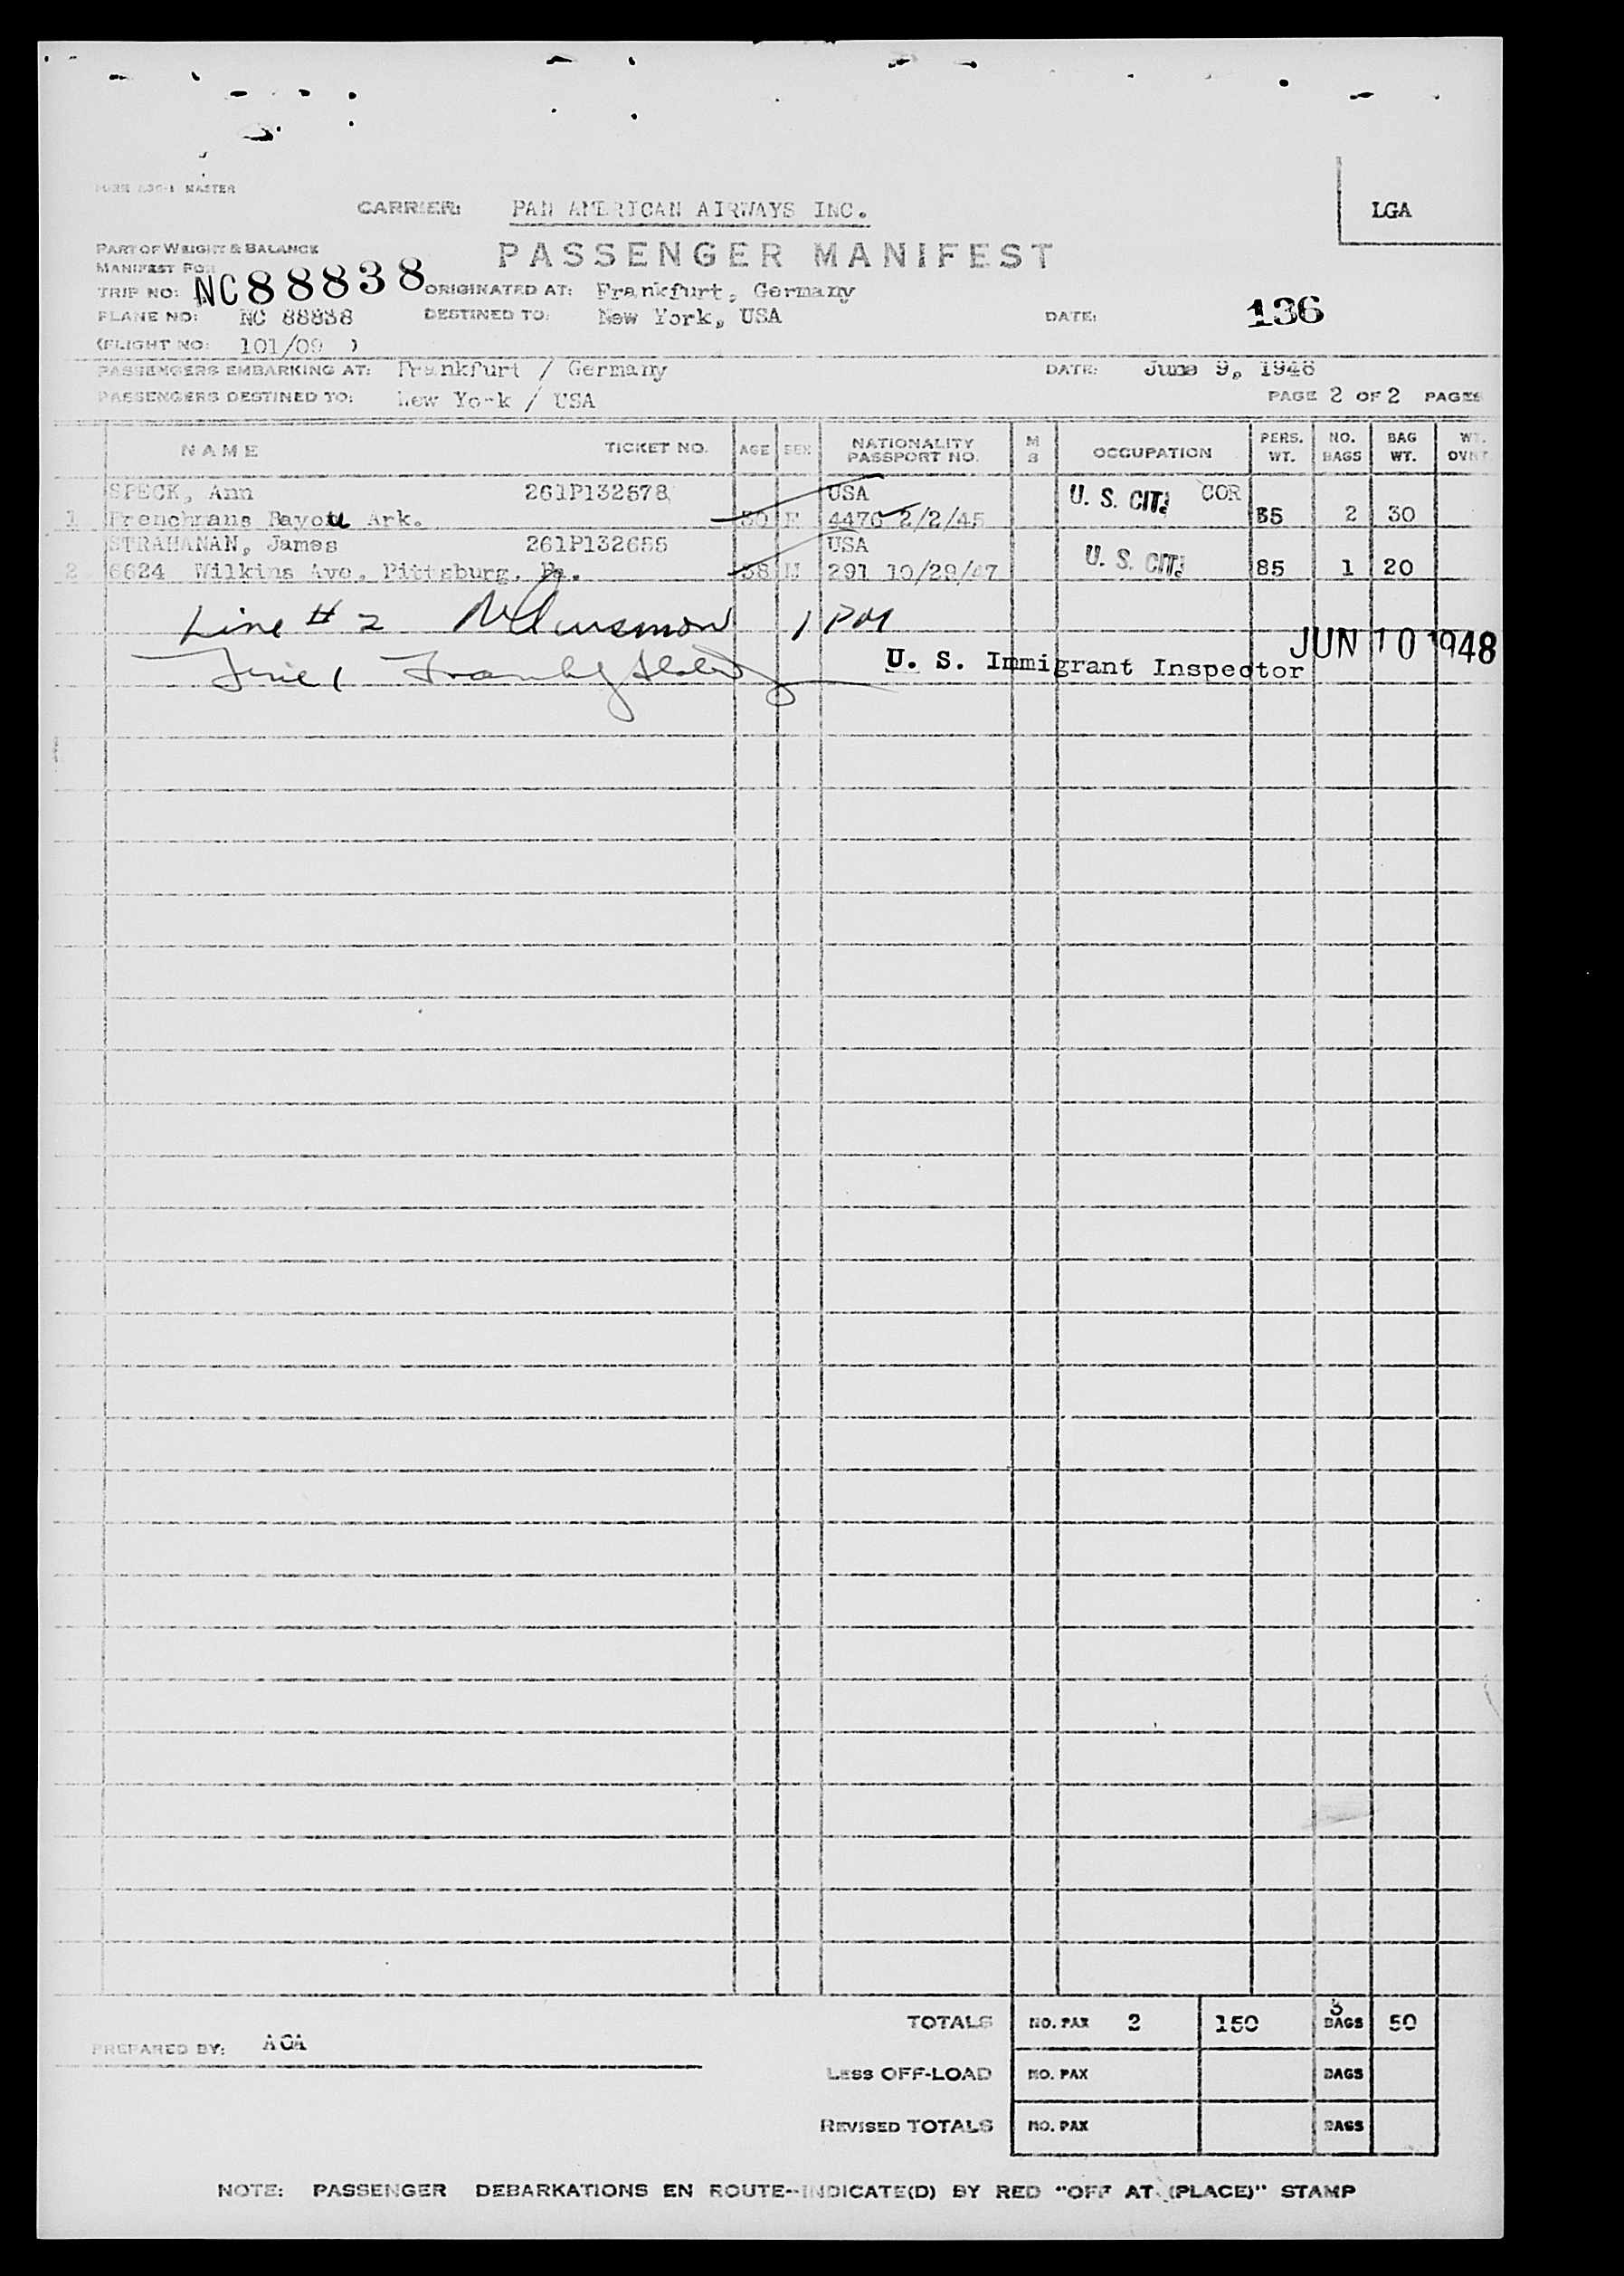 MASTER
CARRIER: PAN AMERICAN AIRWAYS INC.
LGA
PART OF WEIGHT & BALANCE
PASSENGER MANIFEST
MANIFEST FOR
TRIP NO: NC88838 ORIGINATED AT: Frankfurt, Germany
PLANE NO: NC 88838 DESTINED TO: New York, USA DATE: 136
(FLIGHT NO: 101/09 )
PASSENGERS EMBARKING AT: Frankfurt / Germany DATE: June 9, 1948
PASSENGERS DESTINED TO: New York / USA PAGE 2 OF 2 PAGES
NAME TICKET NO. AGE SEX NATIONALITY PASSPORT NO. M S OCCUPATION PERS. WT. NO. BAGS BAG WT. WT.
SPECK, Ann 261P132578 USA U. S. CIT. COR
1 Frenchmans Bayou Ark. F 4476 2/2/45 2 30
STRAHANAN, James 261P132655 USA U. S. CIT.
2 6624 Wilkins Ave. Pittsburg. Pa. 38 M 291 10/29/47 85 1 20
Line # 2 1 PM
JUN 10 1948
Line 1 U. S. Immigrant Inspector
TOTALS NO. PAX 2 150 3 BAGS 50
PREPARED BY: AOA
Less OFF-LOAD NO. PAX BAGS
REVISED TOTALS NO. PAX BAGS
NOTE: PASSENGER DEBARKATIONS EN ROUTE--INDICATE(D) BY RED "OFF AT (PLACE)" STAMP